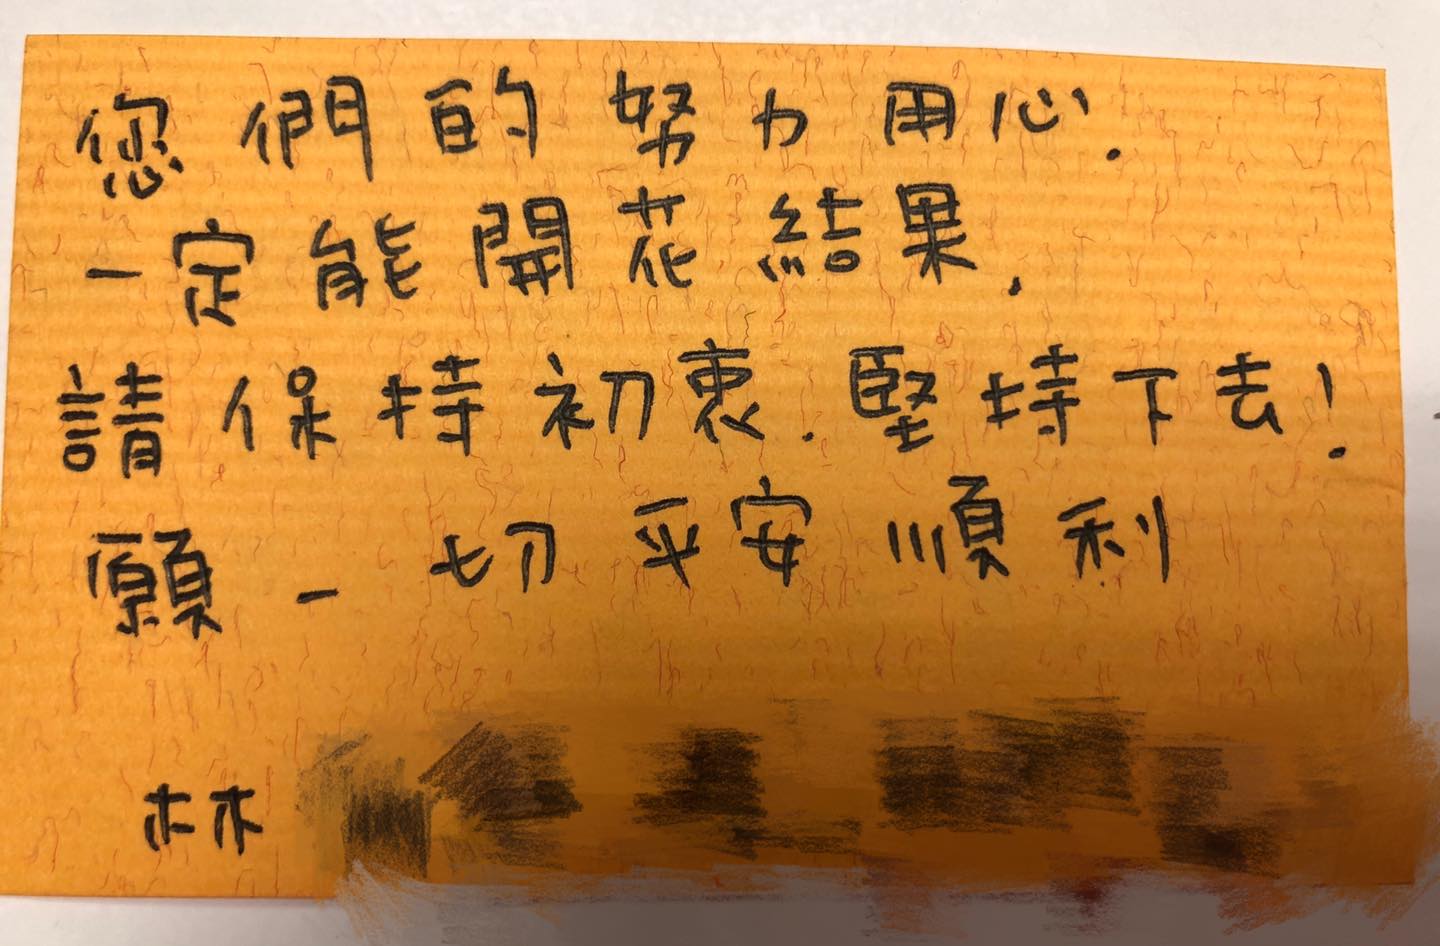 您們的努力用心.
一定能開花結果.
請保持初衷.堅持下去!
願一切平安順利
林